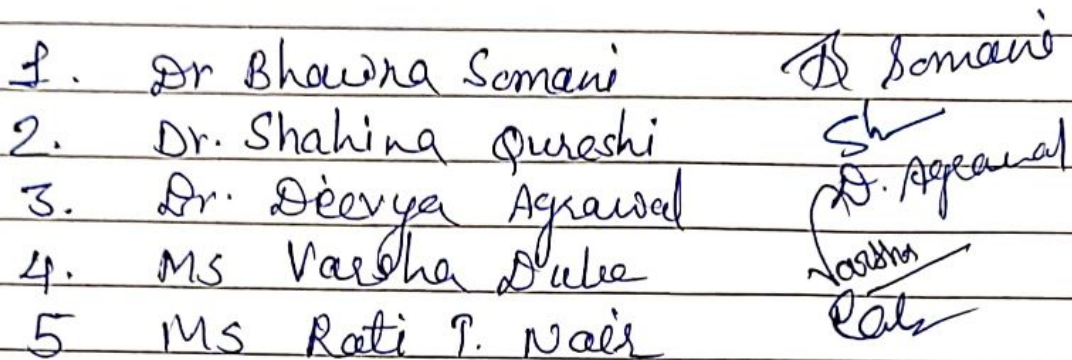 1. Dr Bhawna Somani B Somani
2. Dr. Shahina Qureshi Sh
3. Dr. Deevya Agrawal D. Agrawal
4. Ms Varsha Dube Varsha
5 Ms Rati P. Nair